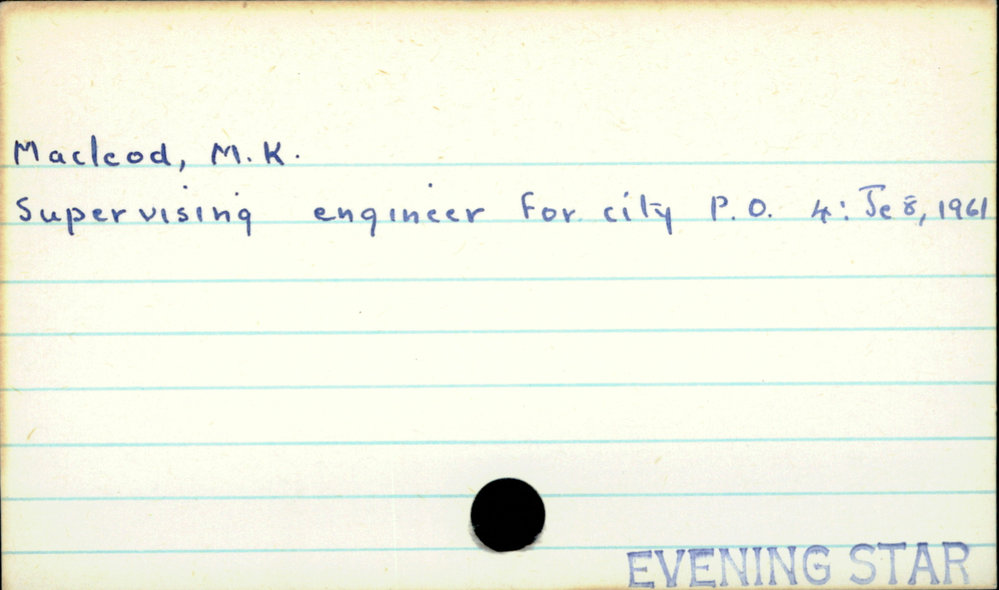 Macleod, M.K.
Supervising engineer for city P.O. 4: Je 8, 1961
EVENING STAR